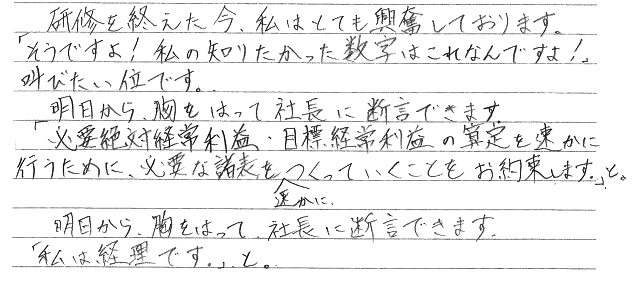 研修を終えた今、私はとても興奮しております。
「そうですよ！私の知りたかった数字はこれなんですよ！」
叫びたい位です。
明日から、胸をはって社長に断言できます。
「必要絶対経常利益・目標経常利益の算定を速かに
行うために、必要な諸表をつくっていくことをお約束します。」と。
速かに
明日から、胸をはって、社長に断言できます。
「私は経理です。」と。